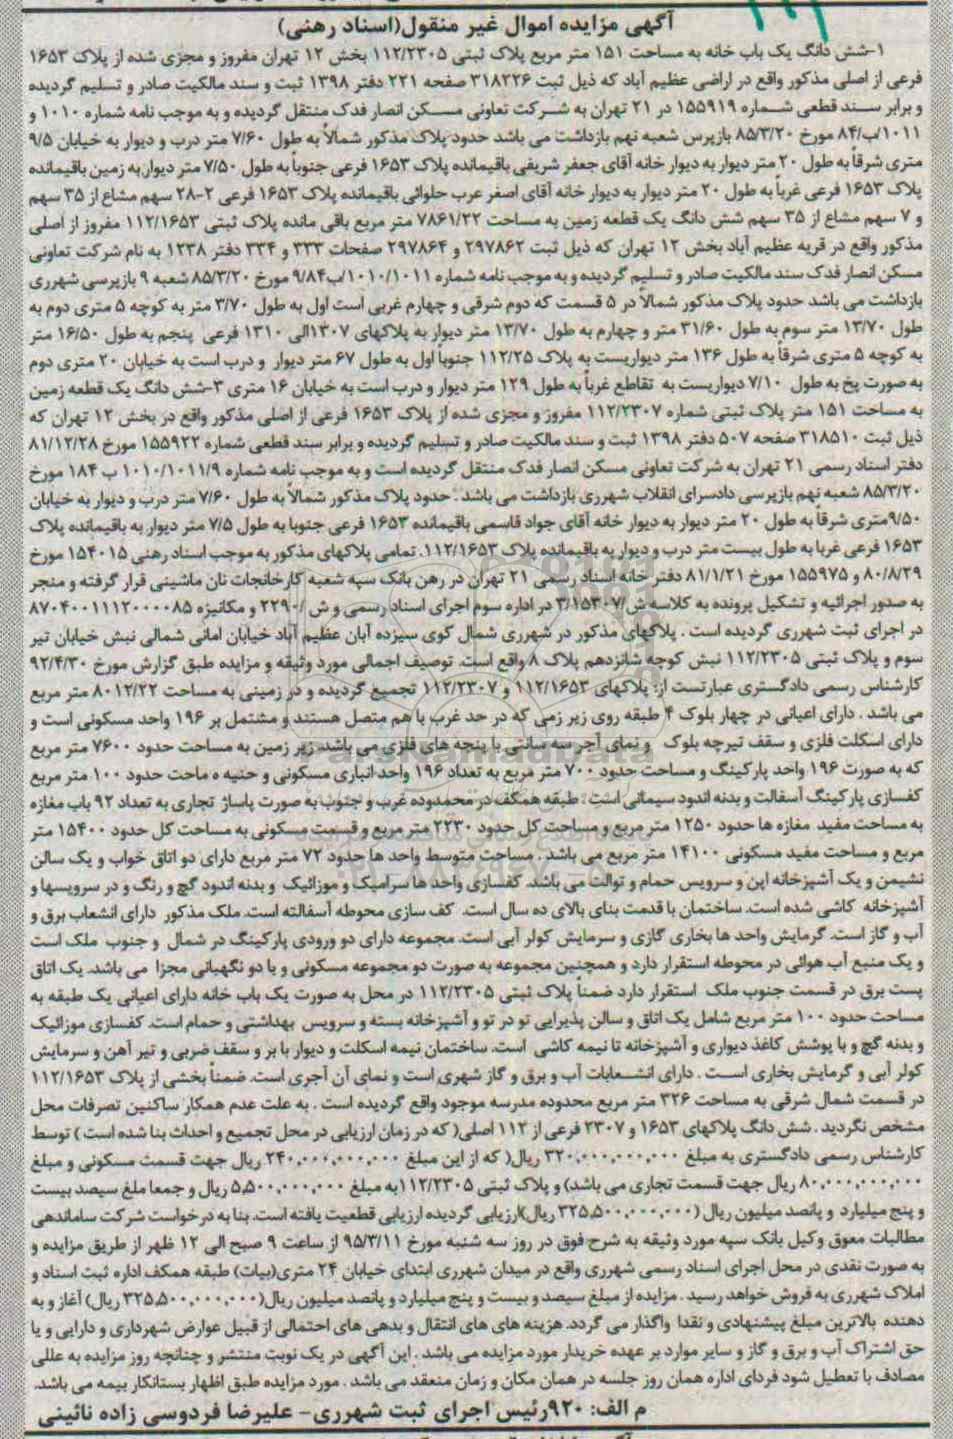 آگهی مزایده اموال غیر منقول(اسناد رهنی)
۱-شش دانگ یک باب خانه به مساحت ۱۵۱ متر مربع پلاک ثبتی ۱۱۲/۲۳۰۵ بخش ۱۲ تهران مفروز و مجزی شده از پلاک ۱۶۵۳
فرعی از اصلی مذکور واقع در اراضی عظیم آباد که ذیل ثبت ۳۱۸۲۲۶ صفحه ۲۲۱ دفتر ۱۳۹۸ ثبت و سند مالکیت صادر و تسلیم گردیده
و برابر سند قطعی شماره ۱۵۵۹۱۹ در ۲۱ تهران به شرکت تعاونی مسکن انصار فدک منتقل گردیده و به موجب نامه شماره ۱۰۱۰ و
۱۰۱۱/ب/۸۴ مورخ ۸۵/۳/۲۰ بازپرس شعبه نهم بازداشت می باشد حدود پلاک مذکور شمالاً به طول ۷/۶۰ متر درب و دیوار به خیابان ۹/۵
متری شرقاً به طول ۲۰ متر دیوار به دیوار خانه آقای جعفر شریفی باقیمانده پلاک ۱۶۵۳ فرعی جنوباً به طول ۷/۵۰ متر دیوار به زمین باقیمانده
پلاک ۱۶۵۳ فرعی غرباً به طول ۲۰ متر دیوار به دیوار خانه آقای اصغر عرب حلوائی باقیمانده پلاک ۱۶۵۳ فرعی ۲-۲۸ سهم مشاع از ۳۵ سهم
و ۷ سهم مشاع از ۳۵ سهم شش دانگ یک قطعه زمین به مساحت ۷۸۶۱/۲۲ متر مربع باقی مانده پلاک ثبتی ۱۱۲/۱۶۵۳ مفروز از اصلی
مذکور واقع در قریه عظیم آباد بخش ۱۲ تهران که ذیل ثبت ۲۹۷۸۶۲ و ۲۹۷۸۶۴ صفحات ۳۳۳ و ۳۳۴ دفتر ۱۲۳۸ به نام شرکت تعاونی
مسکن انصار فدک سند مالکیت صادر و تسلیم گردیده و به موجب نامه شماره ۱۰۱۰/۱۰۱۱/ب۹/۸۴ مورخ ۸۵/۳/۲۰ شعبه ۹ بازپرسی شهرری
بازداشت می باشد حدود پلاک مذکور شمالاً در ۵ قسمت که دوم شرقی و چهارم غربی است اول به طول ۳/۷۰ متر به کوچه ۵ متری دوم به
طول ۱۳/۷۰ متر سوم به طول ۳۱/۶۰ متر و چهارم به طول ۱۳/۷۰ متر دیوار به پلاکهای ۱۳۰۷الی ۱۳۱۰ فرعی پنجم به طول ۱۶/۵۰ متر
به کوچه ۵ متری شرقاً به طول ۱۳۶ متر دیواریست به پلاک ۱۱۲/۲۵ جنوبا اول به طول ۶۷ متر دیوار و درب است به خیابان ۲۰ متری دوم
به صورت پخ به طول ۷/۱۰ دیواریست به تقاطع غرباً به طول ۱۲۹ متر دیوار و درب است به خیابان ۱۶ متری ۳-شش دانگ یک قطعه زمین
به مساحت ۱۵۱ متر پلاک ثبتی شماره ۱۱۲/۲۳۰۷ مفروز و مجزی شده از پلاک ۱۶۵۳ فرعی از اصلی مذکور واقع در بخش ۱۲ تهران که
ذیل ثبت ۳۱۸۵۱۰ صفحه ۵۰۷ دفتر ۱۳۹۸ ثبت و سند مالکیت صادر و تسلیم گردیده و برابر سند قطعی شماره ۱۵۵۹۲۲ مورخ ۸۱/۱۲/۲۸
دفتر اسناد رسمی ۲۱ تهران به شرکت تعاونی مسکن انصار فدک منتقل گردیده است و به موجب نامه شماره ۱۰۱۰/۱۰۱۱/۹ ب ۱۸۴ مورخ
۸۵/۳/۲۰ شعبه نهم بازپرسی دادسرای انقلاب شهرری بازداشت می باشد . حدود پلاک مذکور شمالاً به طول ۷/۶۰ متر درب و دیوار به خیابان
۹/۵۰متری شرقاً به طول ۲۰ متر دیوار به دیوار خانه آقای جواد قاسمی باقیمانده ۱۶۵۳ فرعی جنوبا به طول ۷/۵ متر دیوار به باقیمانده پلاک
۱۶۵۳ فرعی غربا به طول بیست متر درب و دیوار به باقیمانده پلاک ۱۱۲/۱۶۵۳. تمامی پلاکهای مذکور به موجب اسناد رهنی ۱۵۴۰۱۵ مورخ
۸۰/۸/۲۹ و ۱۵۵۹۷۵ مورخ ۸۱/۱/۲۱ دفتر خانه اسناد رسمی ۲۱ تهران در رهن بانک سپه شعبه کارخانجات نان ماشینی قرار گرفته و منجر
به صدور اجرائیه و تشکیل پرونده به کلاسه ش/۳/۱۵۳۰۷ در اداره سوم اجرای اسناد رسمی و ش /۲۲۹۰ و مکانیزه ۸۷۰۴۰۰۱۱۱۲۰۰۰۰۸۵
در اجرای ثبت شهرری گردیده است . پلاکهای مذکور در شهرری شمال کوی سیزده آبان عظیم آباد خیابان امانی شمالی نبش خیابان تیر
سوم و پلاک ثبتی ۱۱۲/۲۳۰۵ نبش کوچه شانزدهم پلاک ۸ واقع است. توصیف اجمالی مورد وثیقه و مزایده طبق گزارش مورخ ۹۲/۴/۳۰
کارشناس رسمی دادگستری عبارتست از: پلاکهای ۱۱۲/۱۶۵۳ و ۱۱۲/۲۳۰۷ تجمیع گردیده و در زمینی به مساحت ۸۰۱۲/۲۲ متر مربع
می باشد . دارای اعیانی در چهار بلوک ۴ طبقه روی زیر زمی که در حد غرب با هم متصل هستند و مشتمل بر ۱۹۶ واحد مسکونی است و
دارای اسکلت فلزی و سقف تیرچه بلوک و نمای آجر سه سانتی با پنجه های فلزی می باشد. زیر زمین به مساحت حدود ۷۶۰۰ متر مربع
که به صورت ۱۹۶ واحد پارکینگ و مساحت حدود ۷۰۰ متر مربع به تعداد ۱۹۶ واحد انباری مسکونی و حنیه ه ماحت حدود ۱۰۰ متر مربع
کفسازی پارکینگ آسفالت و بدنه اندود سیمانی است . طبقه همکف در محمدوده غرب و جنوب به صورت پاساژ تجاری به تعداد ۹۲ باب مغازه
به مساحت مفید مغازه ها حدود ۱۲۵۰ متر مربع و مساحت کل حدود ۲۲۳۰ متر مربع و قسمت مسکونی به مساحت کل حدود ۱۵۴۰۰ متر
مربع و مساحت مفید مسکونی ۱۴۱۰۰ متر مربع می باشد . مساحت متوسط واحد ها حدود ۷۲ متر مربع دارای دو اتاق خواب و یک سالن
نشیمن و یک آشپزخانه اپن و سرویس حمام و توالت می باشد. کفسازی واحد ها سرامیک و موزائیک و بدنه اندود گچ و رنگ و در سرویسها و
آشپزخانه کاشی شده است. ساختمان با قدمت بنای بالای ده سال است. کف سازی محوطه آسفالته است. ملک مذکور دارای انشعاب برق و
آب و گاز است. گرمایش واحد ها بخاری گازی و سرمایش کولر آبی است. مجموعه دارای دو ورودی پارکینگ در شمال و جنوب ملک است
و یک منبع آب هوائی در محوطه استقرار دارد و همچنین مجموعه به صورت دو مجموعه مسکونی و با دو نگهبانی مجزا می باشد. یک اتاق
پست برق در قسمت جنوب ملک استقرار دارد ضمناً پلاک ثبتی ۱۱۲/۲۳۰۵ در محل به صورت یک باب خانه دارای اعیانی یک طبقه به
مساحت حدود ۱۰۰ متر مربع شامل یک اتاق و سالن پذیرایی تو در تو و آشپزخانه بسته و سرویس بهداشتی و حمام است. کفسازی موزائیک
و بدنه گچ و با پوشش کاغذ دیواری و آشپزخانه تا نیمه کاشی است. ساختمان نیمه اسکلت و دیوار با بر و سقف ضربی و تیر آهن و سرمایش
کولر آبی و گرمایش بخاری است . دارای انشعابات آب و برق و گاز شهری است و نمای آن آجری است. ضمناً بخشی از پلاک ۱۱۲/۱۶۵۳
در قسمت شمال شرقی به مساحت ۳۲۶ متر مربع محدوده مدرسه موجود واقع گردیده است . به علت عدم همکار ساکنین تصرفات محل
مشخص نگردید . شش دانگ پلاکهای ۱۶۵۳ و ۲۳۰۷ فرعی از ۱۱۲ اصلی( که در زمان ارزیابی در محل تجمیع و احداث بنا شده است ) توسط
کارشناس رسمی دادگستری به مبلغ ۳۲۰,۰۰۰,۰۰۰,۰۰۰ ریال( که از این مبلغ ۲۴۰,۰۰۰,۰۰۰,۰۰۰ ریال جهت قسمت مسکونی و مبلغ
۸۰,۰۰۰,۰۰۰,۰۰۰ ریال جهت قسمت تجاری می باشد) و پلاک ثبتی ۱۱۲/۲۳۰۵به مبلغ ۵,۵۰۰,۰۰۰,۰۰۰ ریال و جمعا ملغ سیصد بیست
و پنج میلیارد و پانصد میلیون ریال (۳۲۵,۵۰۰,۰۰۰,۰۰۰ ریال)ارزیابی گردیده ارزیابی قطعیت یافته است. بنا به درخواست شرکت ساماندهی
مطالبات معوق وکیل بانک سپه مورد وثیقه به شرح فوق در روز سه شنبه مورخ ۹۵/۳/۱۱ از ساعت ۹ صبح الی ۱۲ ظهر از طریق مزایده و
به صورت نقدی در محل اجرای اسناد رسمی شهرری واقع در میدان شهرری ابتدای خیابان ۲۴ متری(بیات) طبقه همکف اداره ثبت اسناد و
املاک شهرری به فروش خواهد رسید . مزایده از مبلغ سیصد و بیست و پنج میلیارد و پانصد میلیون ریال(۳۲۵,۵۰۰,۰۰۰,۰۰۰ ریال) آغاز و به
دهنده بالاترین مبلغ پیشنهادی و نقدا واگذار می گردد. هزینه های های انتقال و بدهی های احتمالی از قبیل عوارض شهرداری و دارایی و یا
حق اشتراک آب و برق و گاز و سایر موارد بر عهده خریدار مورد مزایده می باشد . این آگهی در یک نوبت منتشر و چنانچه روز مزایده به عللی
مصادف با تعطیل شود فردای اداره همان روز جلسه در همان مکان و زمان منعقد می باشد . مورد مزایده طبق اظهار بستانکار بیمه می باشد.
م الف: ۹۲۰رئیس اجرای ثبت شهرری- علیرضا فردوسی زاده نائینی